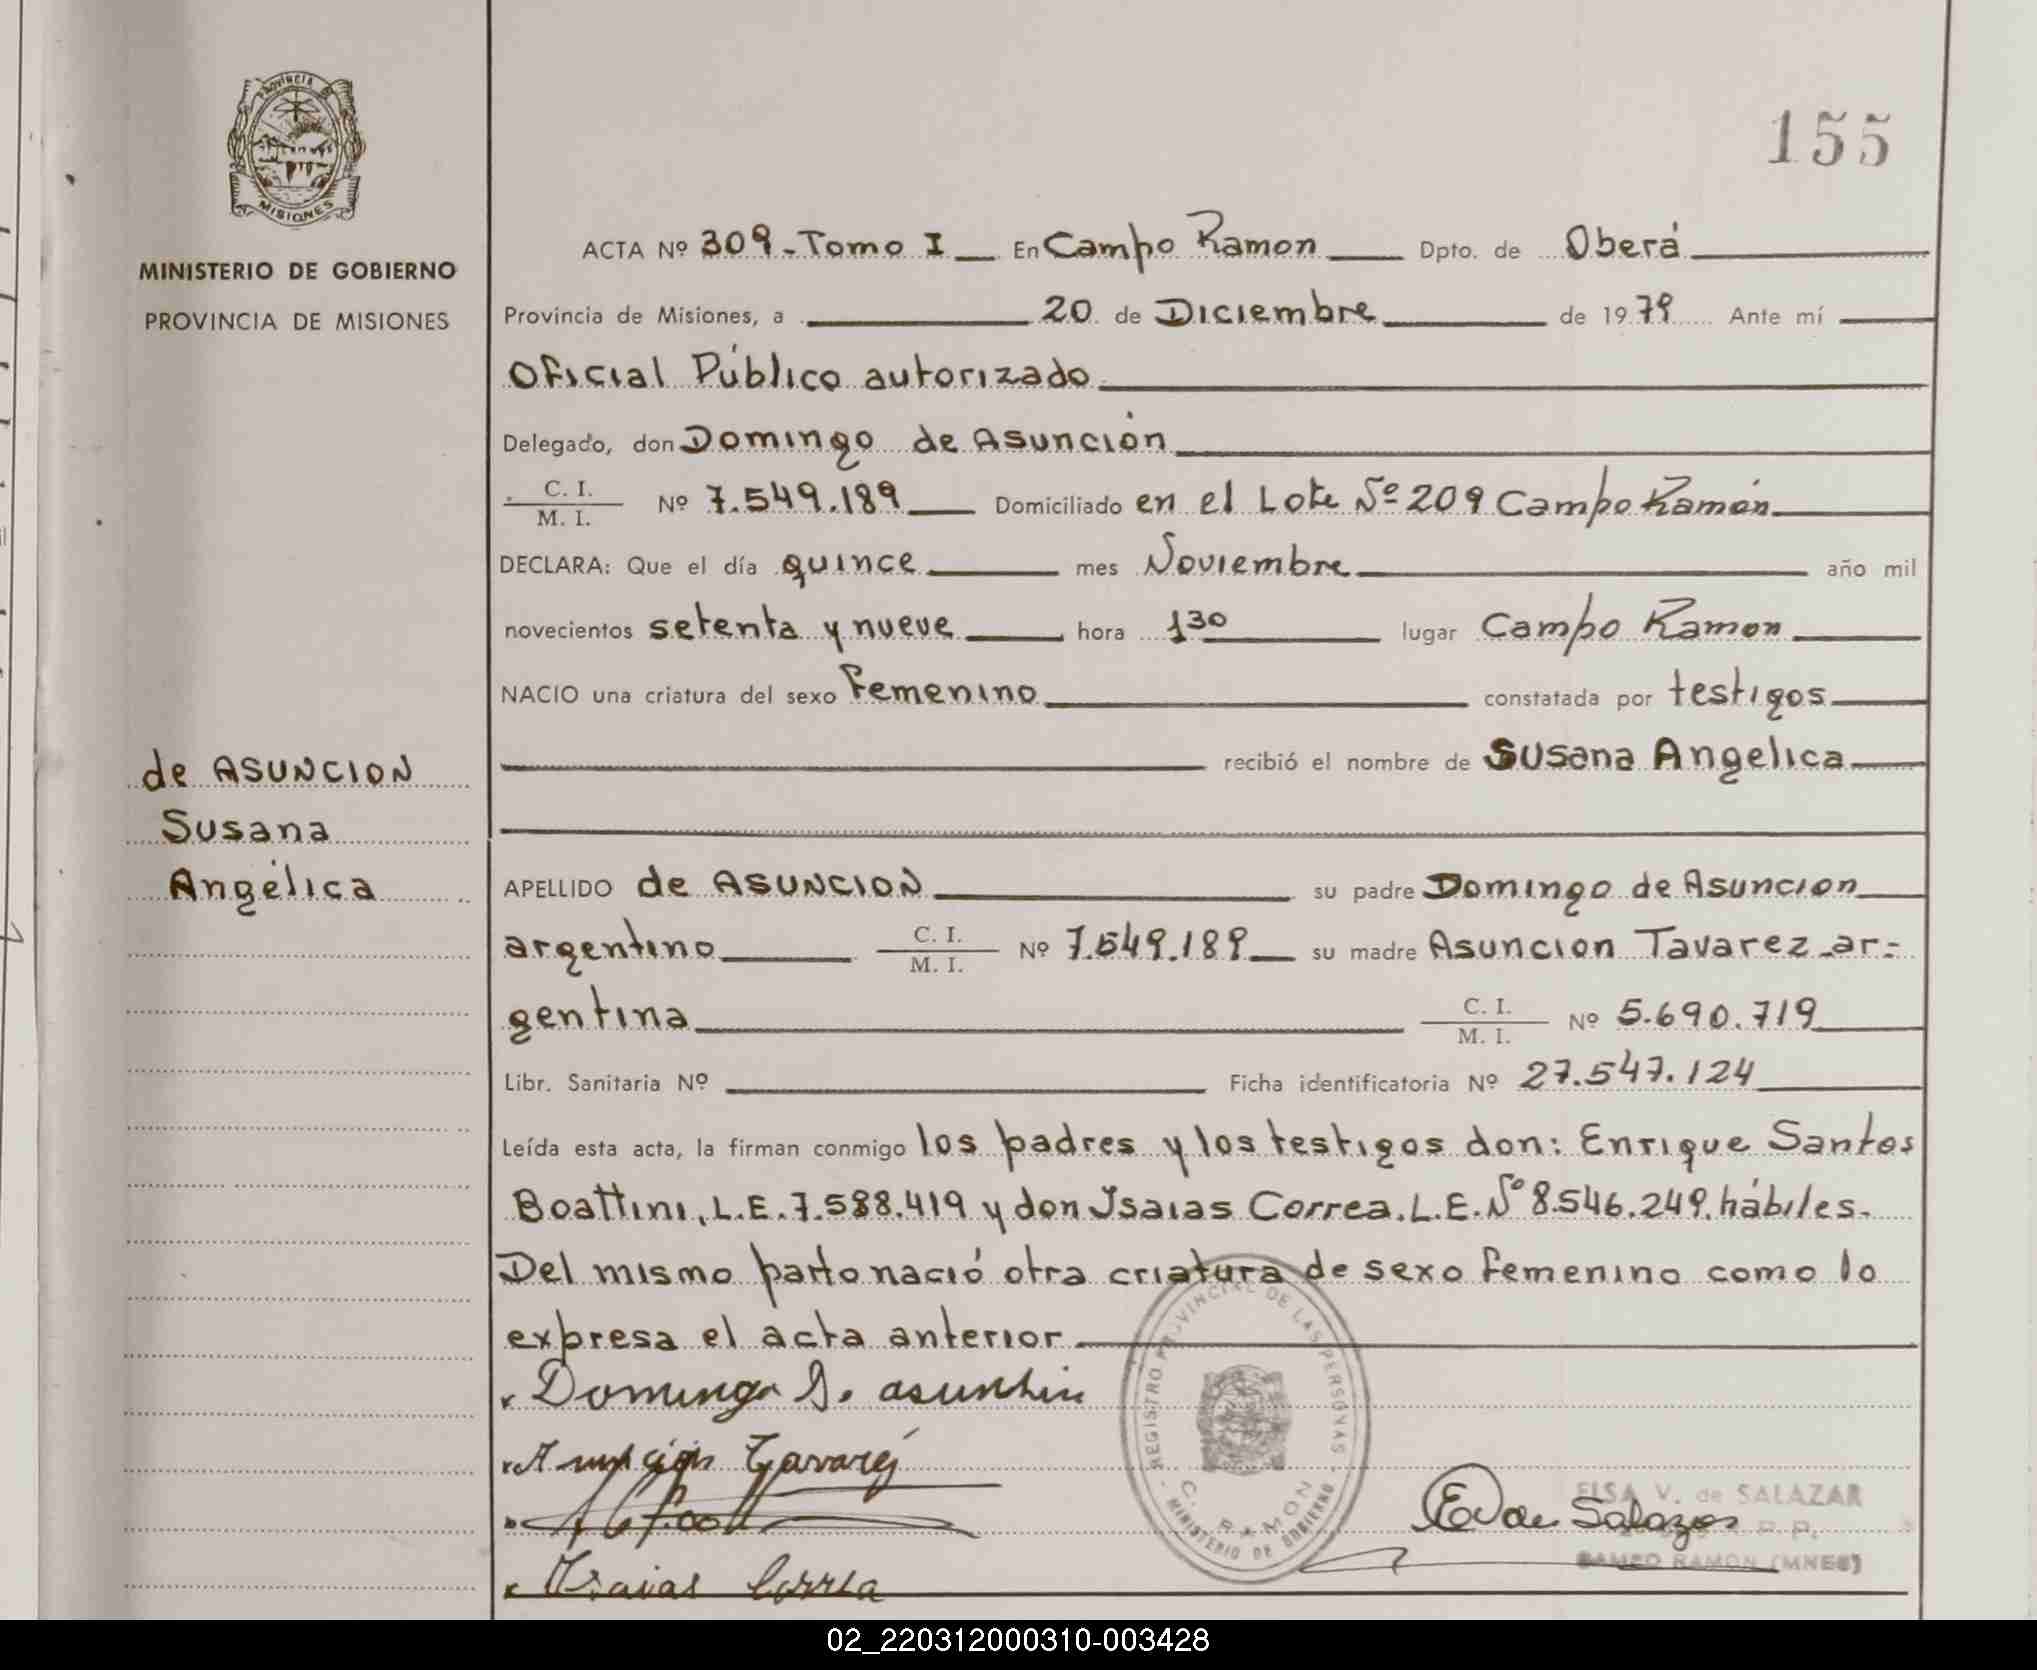 PROVINCIA DE
MISIONES
MINISTERIO DE GOBIERNO
PROVINCIA DE MISIONES
155
ACTA Nº 309 - Tomo I En Campo Ramon Dpto. de Oberá
Provincia de Misiones, a 20 de Diciembre de 1979 Ante mí
Oficial Público autorizado
Delegado, don Domingo de Asunción
C. I.
M. I. Nº 7.549.189 Domiciliado en el Lote Nº 209 Campo Ramón
DECLARA: Que el día quince mes Noviembre año mil
novecientos setenta y nueve hora 1 30 lugar Campo Ramon
NACIO una criatura del sexo femenino constatada por testigos
recibió el nombre de Susana Angelica
de ASUNCION
Susana
Angélica
APELLIDO de ASUNCION su padre Domingo de Asuncion
argentino C. I.
M. I. Nº 7.549.189 su madre Asuncion Tavarez - ar-
gentina C. I.
M. I. Nº 5.690.719
Libr. Sanitaria Nº Ficha identificatoria Nº 27.547.124
Leída esta acta, la firman conmigo los padres y los testigos don: Enrique Santos
Boattini, L.E. 7.588.419 y don Isaias Correa. L.E. Nº 8.546.249. hábiles.
Del mismo parto nació otra criatura de sexo femenino como lo
expresa el acta anterior
Domingo D. asunhin
Asuncion Tavarez
Isaias Correa
REGISTRO PROVINCIAL DE LAS PERSONAS
C. RAMON
MINISTERIO DE GOBIERNO
E V de Salazar
ELSA V. de SALAZAR
CAMPO RAMON (MNES)
02_220312000310-003428